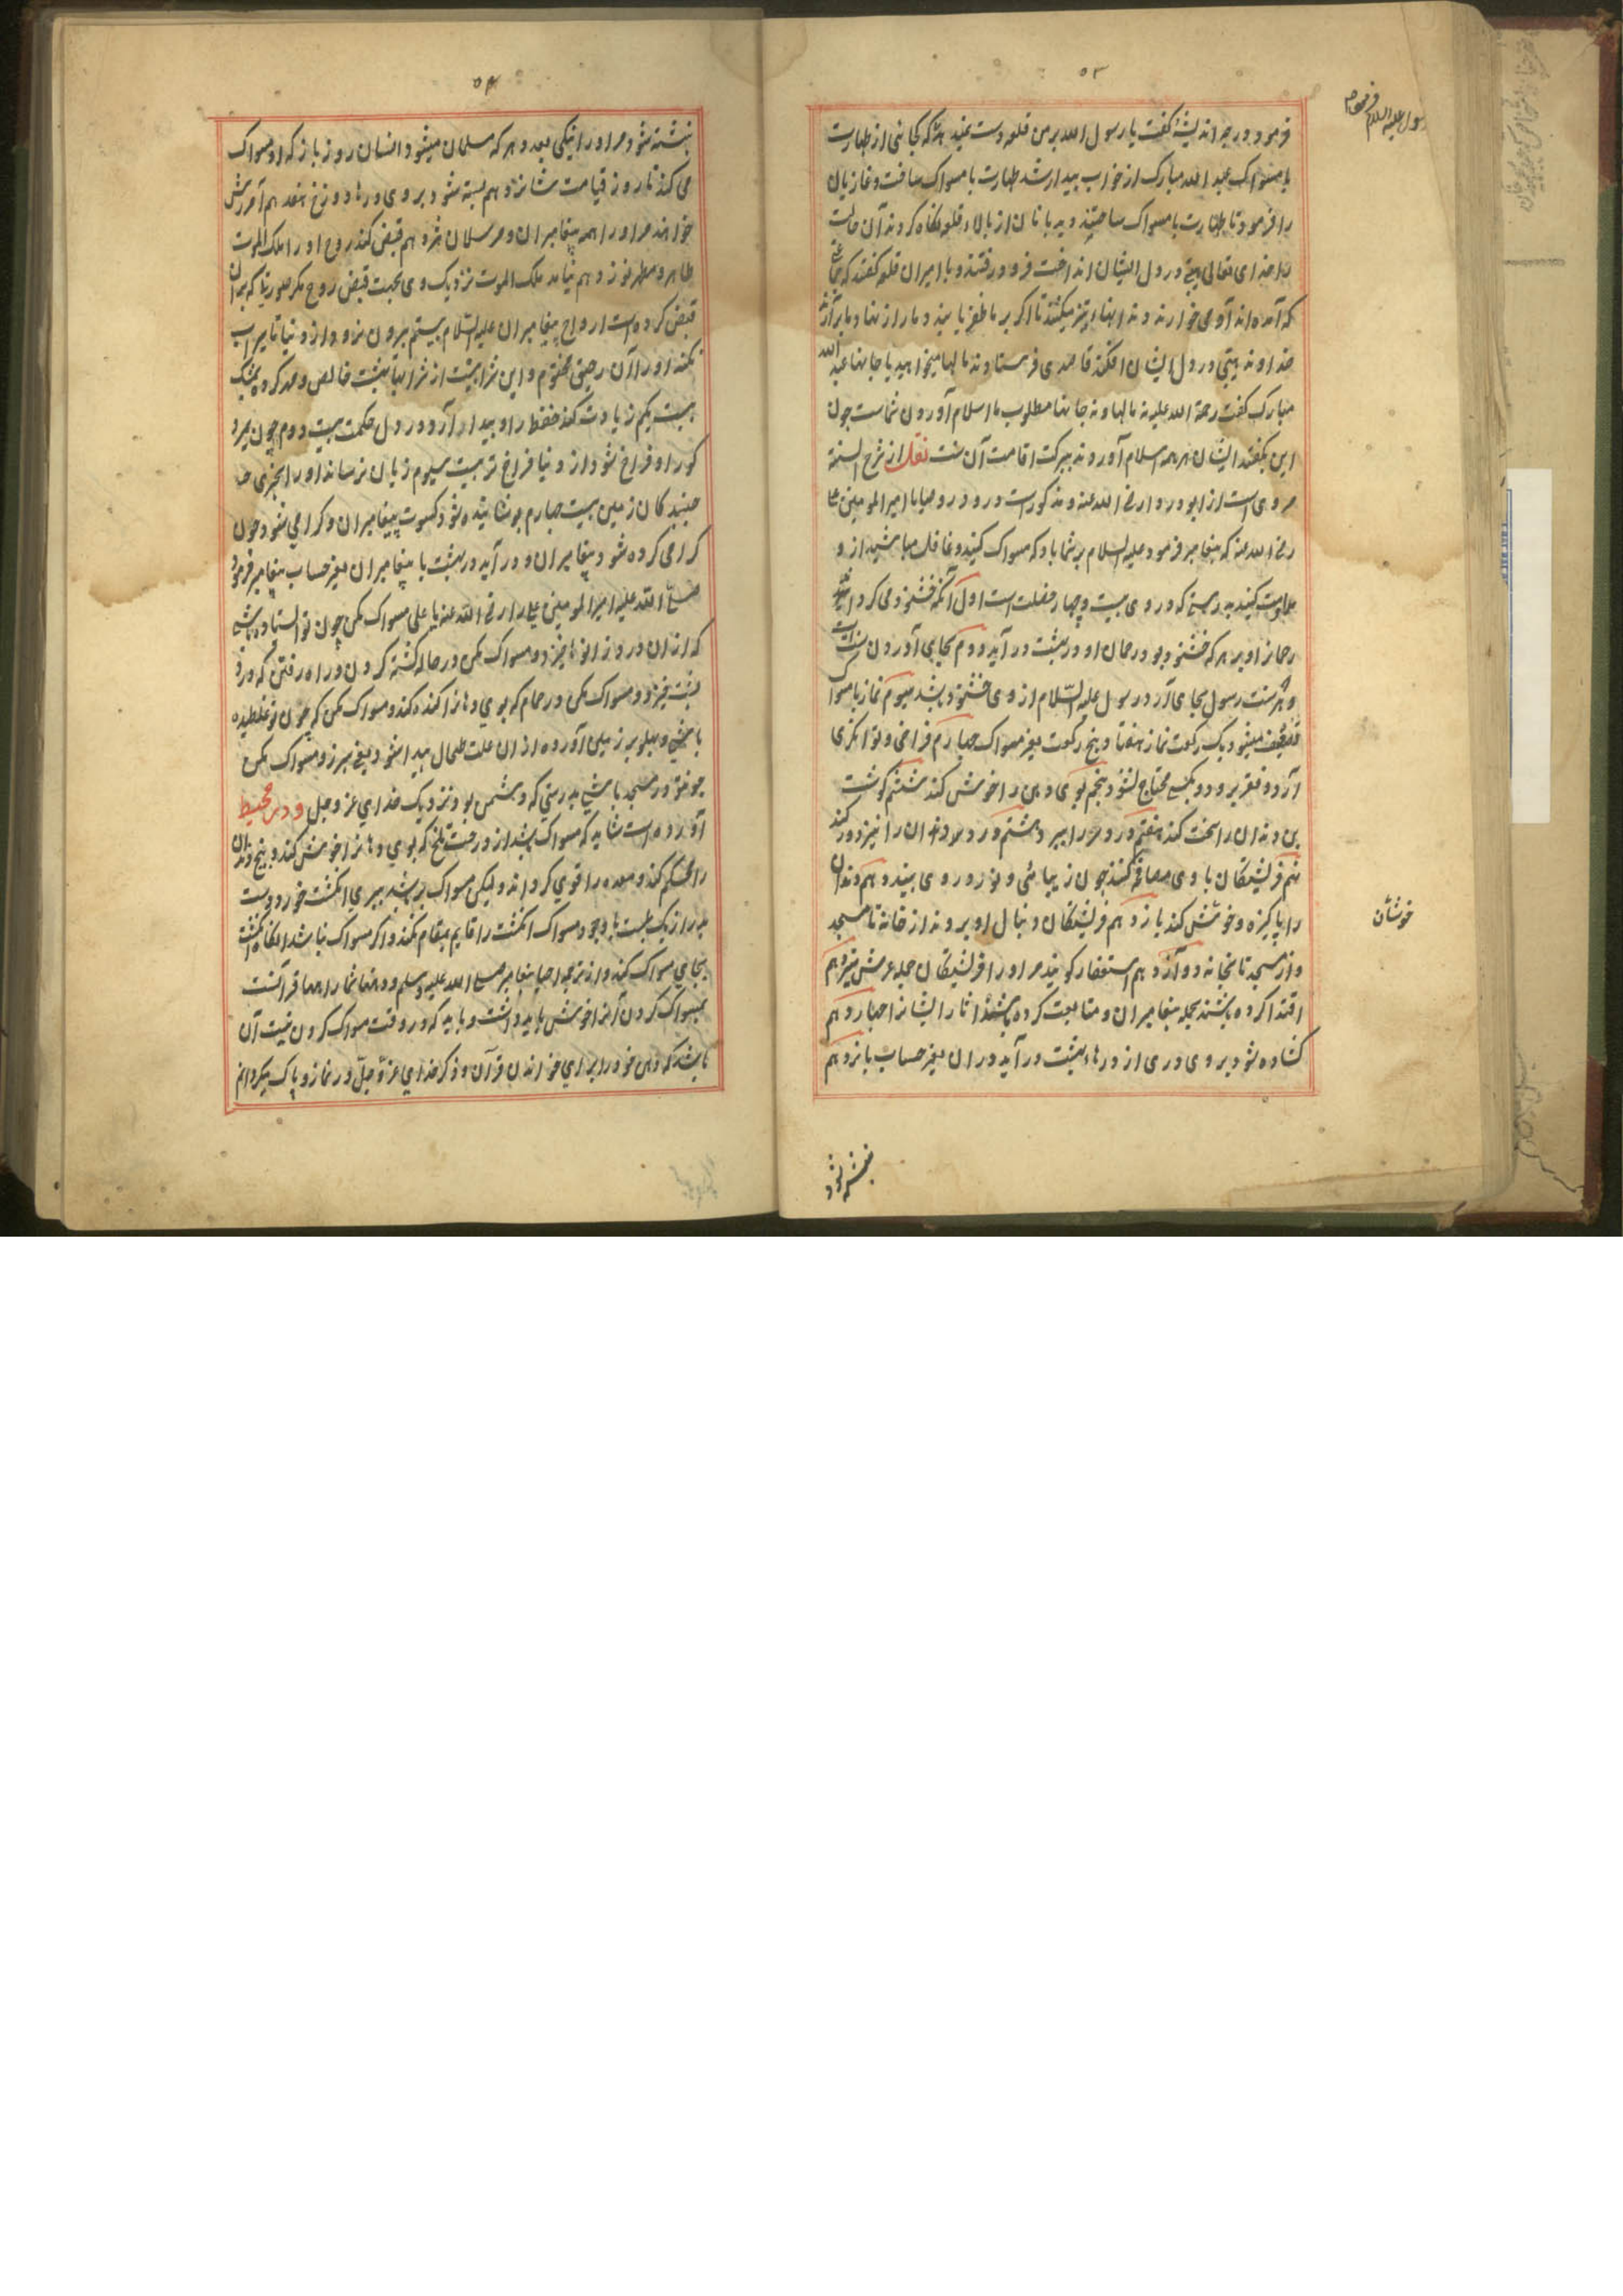 ۵۳
رسول علیه السلام فرمود
فرمود در چه اندیشۀ گفت یا رسول الله بر من قلعه دست نمیدهد گفت که بجا نی از طهارت
با مسواک عبد الله مبارک از خواب بیدار شد طهارت با مسواک ساخت و غازیان
را فرمود تا طهارت با مسواک ساختند دیده بانان از بالاء قلعه نگاه کردند آن حالت
را خدای تعالی هیبتی در دل ایشان انداخت فرود رفتند و با امیران قلعه گفتند که
که آمده اند آدمی خوارند دندانها تیز میکنند تا اگر بر ما ظفر یابند دمار از نهاد ما برآرند
خداوند هیبتی در دل ایشان افکند قاصدی فرستادند مالها میخواهید یا جانها عبد الله
مبارک گفت رحمة الله علیه نه مالها و نه جانها مطلوب ما اسلام آوردن شماست چون
این بگفتند ایشان همه اسلام آوردند ببرکت اقامت آن سنت نقل از شرح السنة
مروی است از ابو دردا رضی الله عنه و مذکور است در وصایا با امیر المومنین علی
رضی الله عنه که پیغامبر فرمود علیه السلام بر شما باد که مسواک کنید و غافل مباشید از و
مداومت کنید بدرستی که در وی بیست و چهار فضلت است اول آنکه خشنود می گرداند
رحمان از و بر هر که خشنود بود رحمان او در بهشت در آید دوم بجای آوردن سنت
و هر که سنت رسول بجای آرد رسول علیه السلام از وی خشنود باشد سیوم نماز با مسواک
تضعیف میشود یک رکعت نماز هفتاد و پنج رکعت بغیر مسواک چهارم فراخی و توانگری
آرد و فقر برود و بکسی محتاج نشود پنجم بوی دهن را خوش کند ششم گوشت
بن دندان را سخت کند هفتم درد سر را ببرد هشتم درد دندان را نیز دور کند
نهم فریشتگان با وی مصافحه کنند چون زیبائی و نور در روی بینند دهم دندان
را پاکیزه و خوشش کند یازدهم فریشتگان دنبال او بروند از خانه تا مسجد
و از مسجد تا بخانه دوازدهم استغفار گویند مر او را فریشتگان حمله عرش سیزدهم
اقتدا کرده باشند بجمله پیغامبران و متابعت کرده باشد آثار ایشانرا چهاردهم
کشاده شود بر وی دری از درهاء بهشت در آید در آن بغیر حساب پانزدهم
خوشان
نبشته شود
۵۴
نبشته شود مر او را نیکی بعدد هر که مسلمان میشود انسان روز باز که او مسواک
می کند تا روز قیامت شانزدهم بسته شود بر وی درهاء دوزخ هفدهم آمرزش
خواهند مر او را همه پیغامبران و مرسلان هژدهم قبض کند روح او را ملک الموت
طاهر و مطهر نوزدهم نیامد ملک الموت نزدیک وی بجهت قبض روح مگر صورتیکه بدان
قبض کرده است ارواح پیغامبران علیه السلام بیستم بیرون نرود از دنیا تا سیراب
نکند او را از رحیق مختوم و این شرابیست از شرابهاء بهشت خالص و مهر کرده بمشک
بیست یکم زیادت کند حفظ را و بیدار آرد در دل حکمت بیست دوم چون بمیرد
گور او فراخ شود از دنیا فراخ تر بیست سیوم زیان نرساند او را چیزی
جنبندگان زمین بیست چهارم پوشانیده شود کسوت پیغامبران و گرامی شود چون
گرامی کرده شود پیغامبران و در آید در بهشت با پیغامبران بغیر حساب پیغامبر فرمود
صلی الله علیه امیر المومنین علی را رضی الله عنه یا علی مسواک مکن چون تو استاده باشی
که از ان درد زانوها خیزد و مسواک مکن در حالت کشته کردن و راه رفتن که درد
پشت خیزد و مسواک مکن در حمام که بوی دهانرا گنده کند و مسواک مکن که چون تو غلطیده
باشی و پهلو بر زمین آورده از ان علت طحال پیدا شود یعنی سپرز و مسواک مکن
چو تو در مسجد باشی بدرستی که دشمن بود نزدیک خدای عز و جل و در محیط
آورده است شاید که مسواک باشد از درخت تلخ که بوی دهانرا خوش کند و بیخ دندان
را محکم کند و معده را قوی گرداند ولیکن مسواک بسطبری انگشت خرد و بست
دراز یک بلست با وجود مسواک انگشت را قایم مقام نکند و اگر مسواک نباشد آنگاه انگشت
بجای مسواک کند و از ترجمه احیا پیغامبر صلی الله علیه وسلم و دهنهای شما راهها قرآنست
بمسواک کردن آنرا خوش باید داشت و باید که در وقت مسواک کردن نیت آن
باشد که دهن خود را برای خواندن قرآن و ذکر خدای عز و جل در نماز و پاک میگردانم